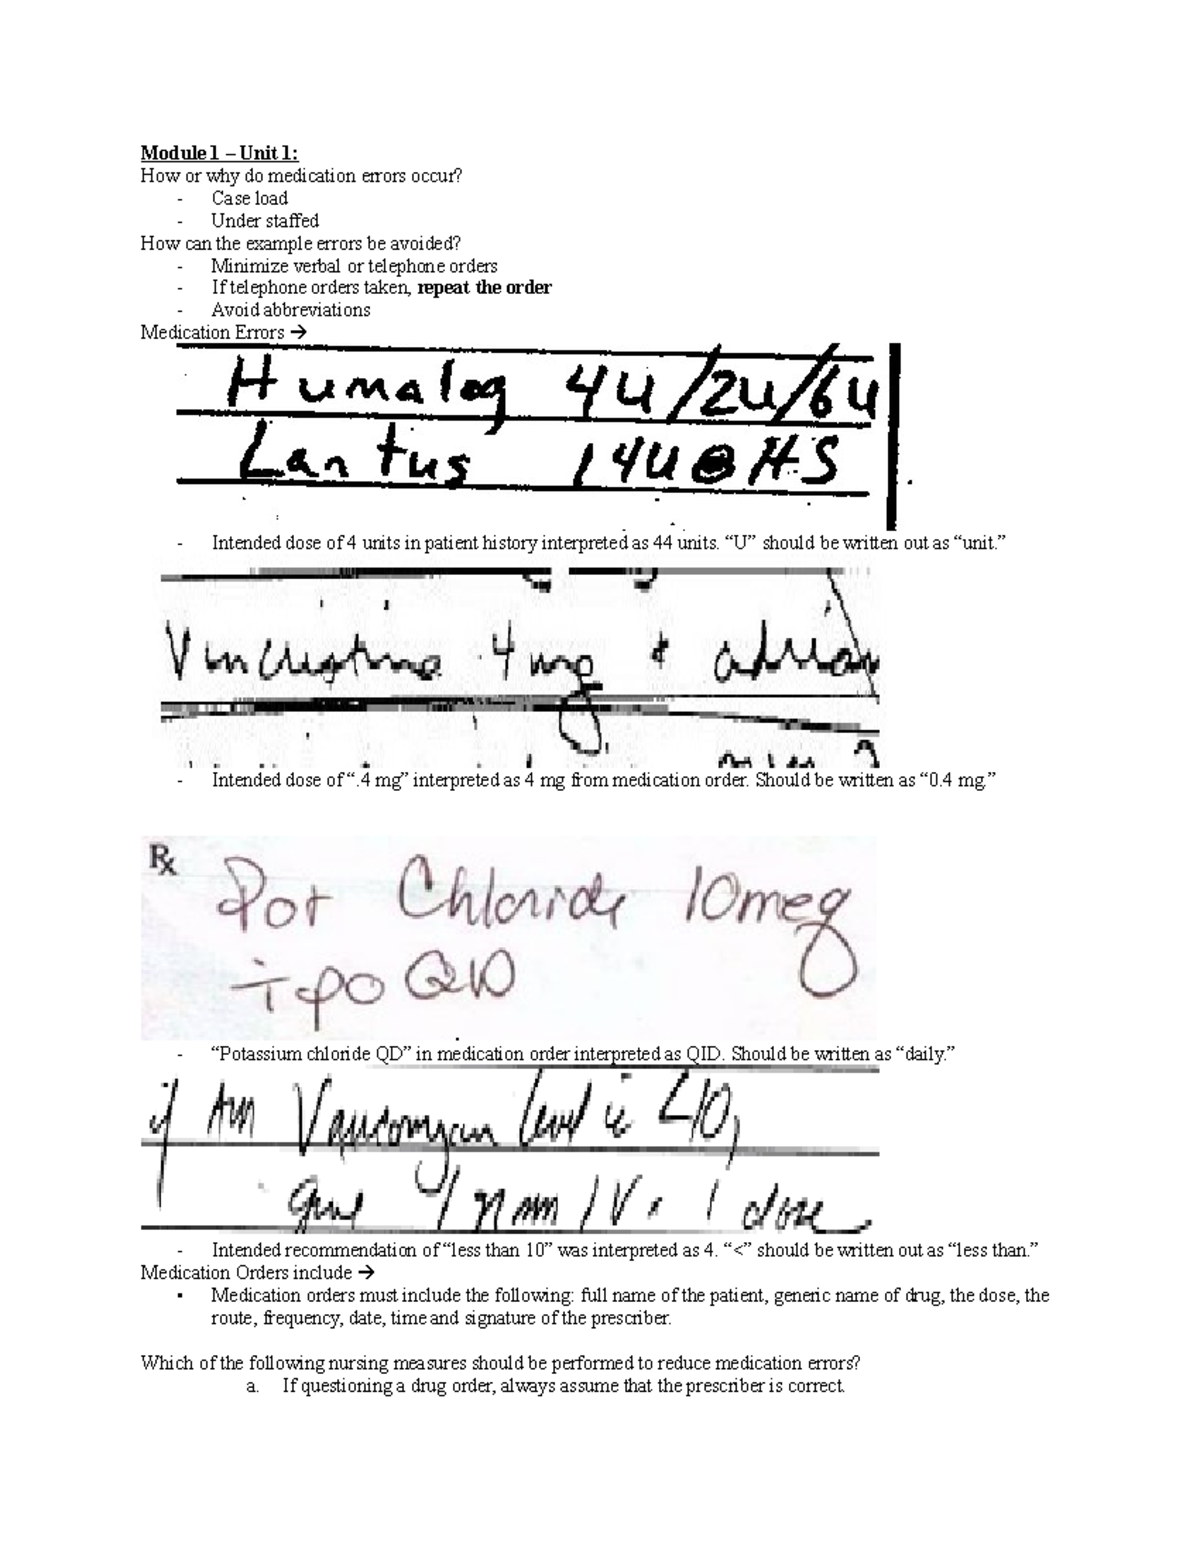 Module 1 – Unit 1:
How or why do medication errors occur?
- Case load
- Under staffed
How can the example errors be avoided?
- Minimize verbal or telephone orders
- If telephone orders taken, repeat the order
- Avoid abbreviations
Medication Errors →
Humalog 4U/2U/6U
Lantus 14U@HS
- Intended dose of 4 units in patient history interpreted as 44 units. “U” should be written out as “unit.”
Vincristine .4mg +
- Intended dose of “.4 mg” interpreted as 4 mg from medication order. Should be written as “0.4 mg.”
Rx Pot Chloride 10meq
po QD
- “Potassium chloride QD” in medication order interpreted as QID. Should be written as “daily.”
if AM Vancomycin level is <10,
give IV x 1 dose
- Intended recommendation of “less than 10” was interpreted as 4. “<” should be written out as “less than.”
Medication Orders include →
▪ Medication orders must include the following: full name of the patient, generic name of drug, the dose, the
route, frequency, date, time and signature of the prescriber.
Which of the following nursing measures should be performed to reduce medication errors?
a. If questioning a drug order, always assume that the prescriber is correct.